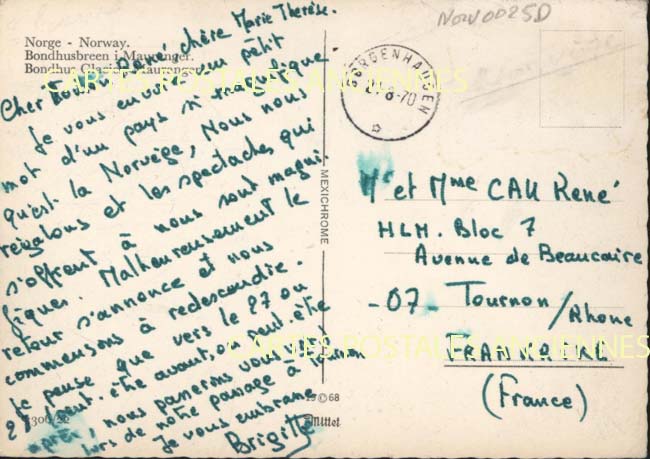 Norge - Norway.
Bondhusbreen i Mauranger.
Bondhus Glacier, Mauranger
Cher René, chère Marie Thérèse.
Je vous envoie un petit
mot d'un pays si magnifique
qu'est la Norvège, Nous nous
régalons et les spectacles qui
s'offrent à nous sont magni-
fiques. Malheureusement le
retour s'annonce et nous
commençons à redescendre.
Je pense que vers le 27 ou
28 peut-être avant, ou peut-être
après, nous passerons vous voir
lors de notre passage à Tournon
Je vous embrasse
Brigitte
1306/22
MEXICHROME
© 68
Mittet
Norv0025D
21-8-70
Mr et Mme CAU René
HLM. Bloc 7
Avenue de Beaucaire
-07- Tournon /Rhone
(France)
CARTES POSTALES ANCIENNES
CARTES POSTALES ANCIENNES